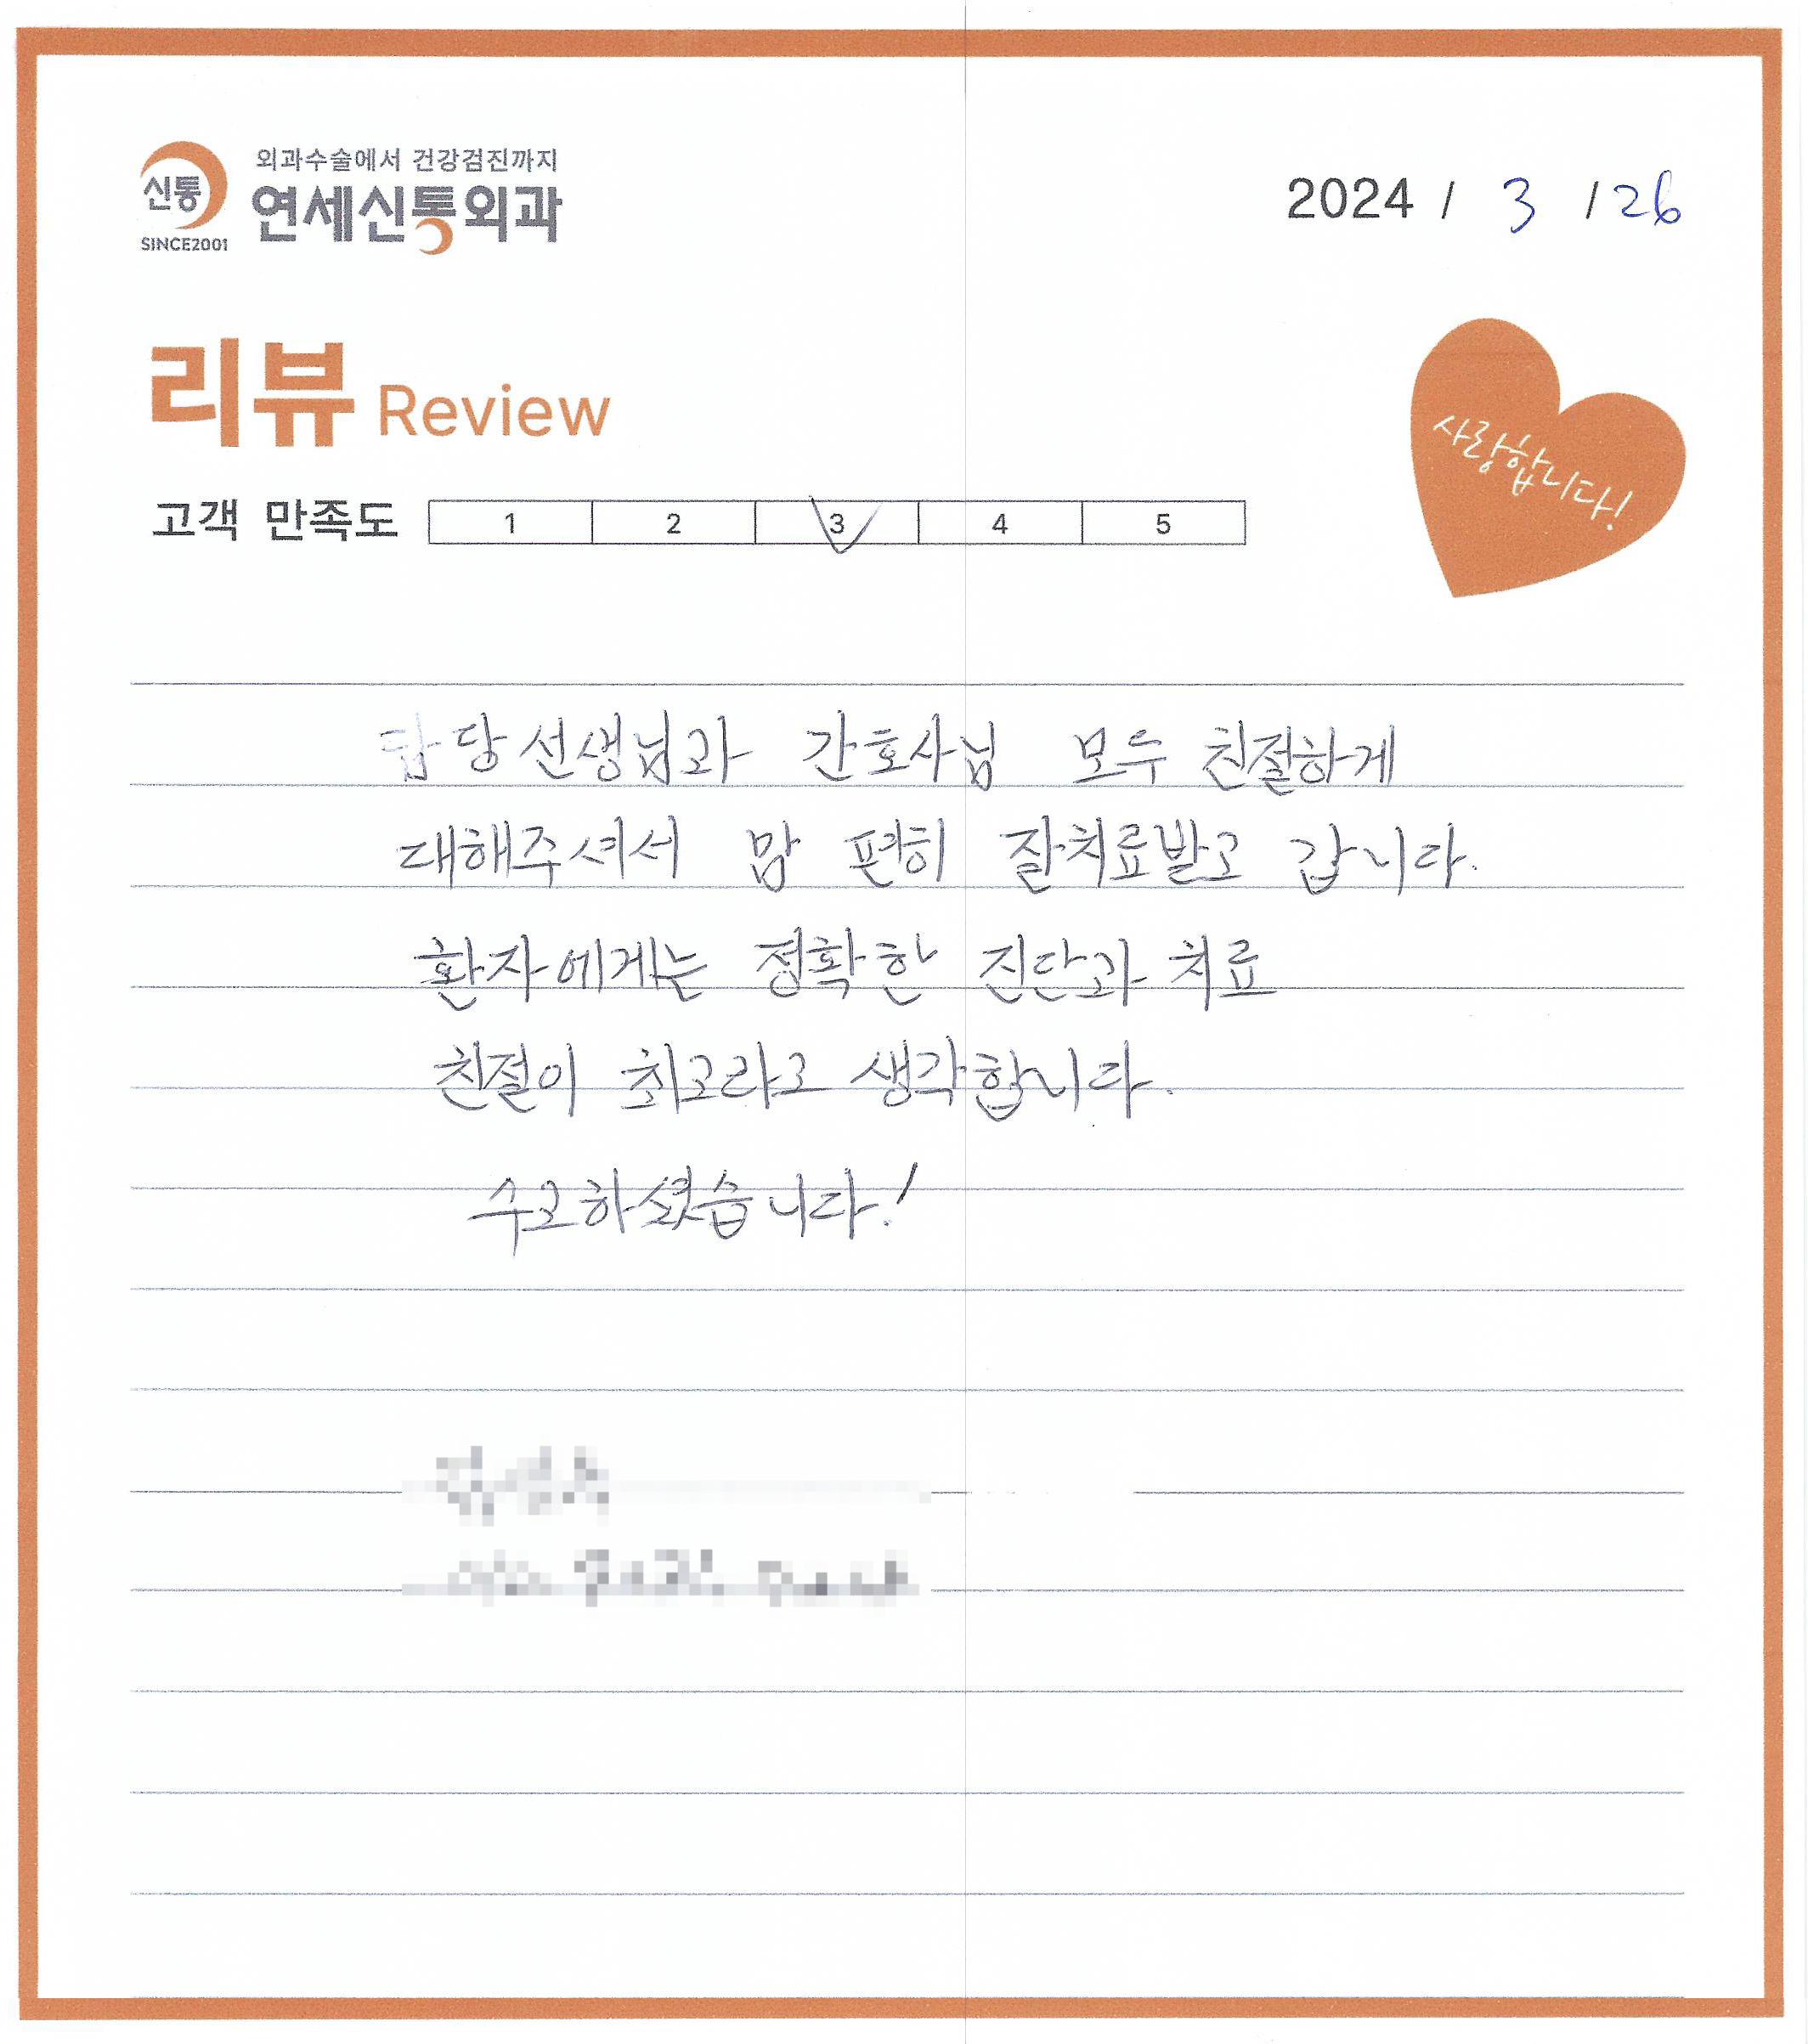 신통
SINCE2001
외과수술에서 건강검진까지
연세신통외과
2024 / 3 / 26
리뷰 Review
사랑합니다!
고객 만족도 1 2 3 4 5
담당선생님과 간호사님 모두 친절하게
대해주셔서 맘 편히 잘치료받고 갑니다.
환자에게는 정확한 진단과 치료
친절이 최고라고 생각합니다.
수고하셨습니다!